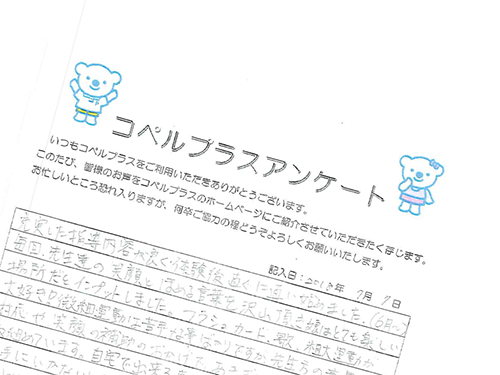 コペルプラスアンケート
いつもコペルプラスをご利用いただきありがとうございます。
このたび、皆様のお声をコペルプラスのホームページにご紹介させていただきたく存じます。
お忙しいところ恐れ入りますが、何卒ご協力の程どうぞよろしくお願いいたします。
記入日：2018年 9月 9日
充実した指導内容が良く体験後直ぐに通い始めました。(6月〜)
毎回、先生達の笑顔、ほめる言葉を沢山頂き娘はとても楽しい
場所だとインプットしました。フラッシュカード、歌、粗大運動が
大好き♡微細運動は苦手な事ばかりですが先生方の
対応や笑顔の補助のおかげで、
始めています。自宅で出来る